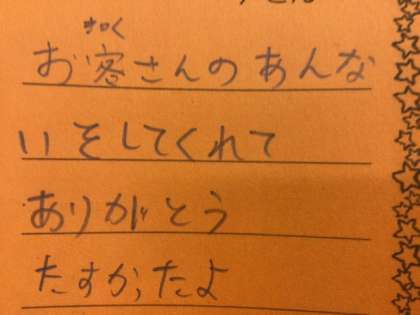 きゃく
お客さんのあんな
いをしてくれて
ありがとう
たすかったよ